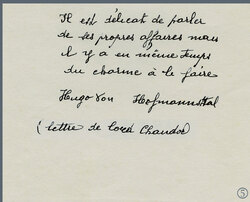 Il est délicat de parler
de ses propres affaires mais
il y a en même temps
du charme à le faire
Hugo von Hofmannsthal
(lettre de Lord Chandos)
5